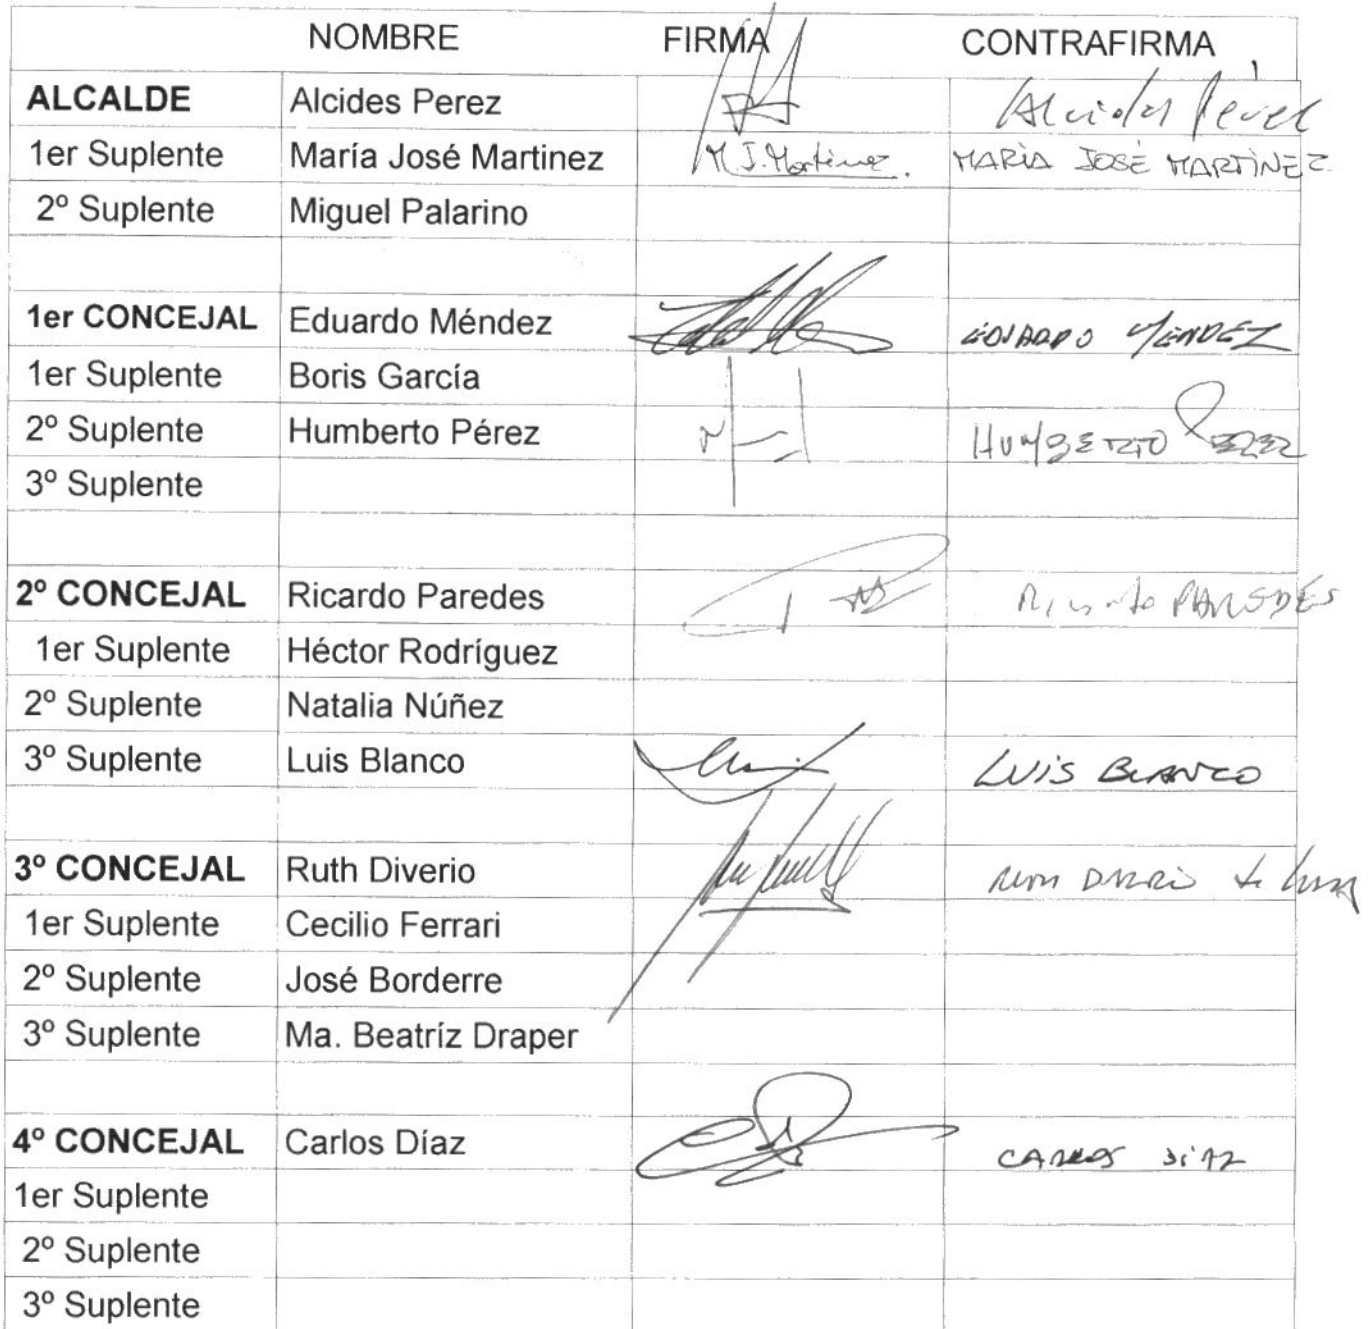 NOMBRE FIRMA CONTRAFIRMA
ALCALDE Alcides Perez Alcides Pérez
1er Suplente María José Martinez M J. Martinez. MARÍA JOSÉ MARTÍNEZ
2º Suplente Miguel Palarino
1er CONCEJAL Eduardo Méndez EDUARDO MENDEZ
1er Suplente Boris García
2º Suplente Humberto Pérez HUMBERTO PEREZ
3º Suplente
2º CONCEJAL Ricardo Paredes Ricardo PAREDES
1er Suplente Héctor Rodríguez
2º Suplente Natalia Núñez
3º Suplente Luis Blanco LUIS BLANCO
3º CONCEJAL Ruth Diverio
1er Suplente Cecilio Ferrari
2º Suplente José Borderre
3º Suplente Ma. Beatríz Draper
4º CONCEJAL Carlos Díaz CARLOS DÍAZ
1er Suplente
2º Suplente
3º Suplente